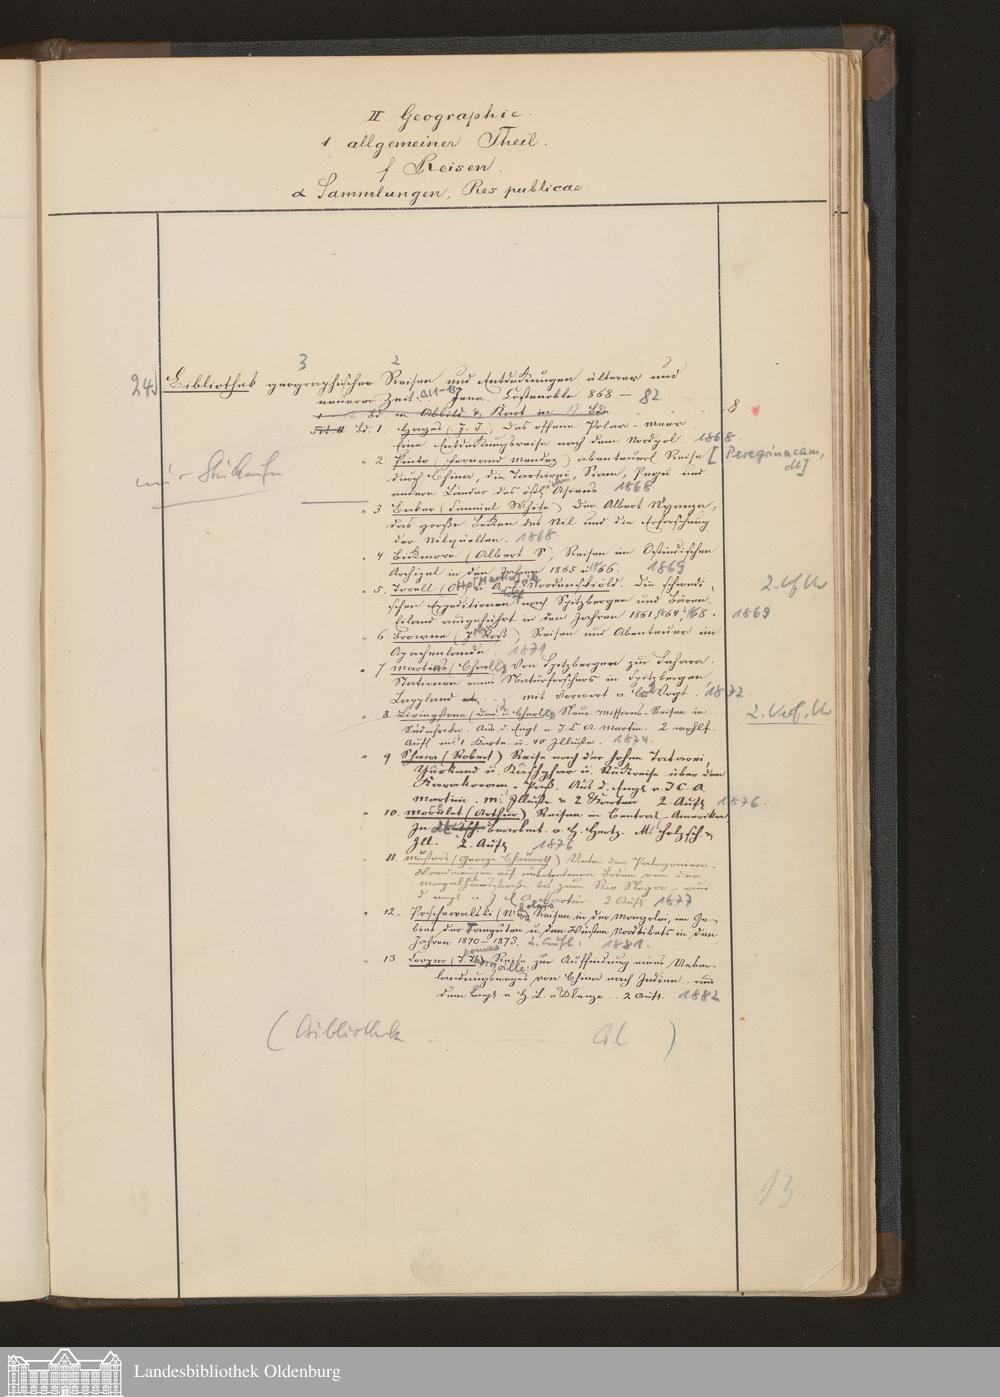 II. Geographie.
1 allgemeiner Theil.
f Reisen.
α Sammlungen, Res publicae
3 2
24) Bibliothek geographischer Reisen und Entdeckungen älterer und
neuerer Zeit. Bd 1-13 Jena. Costenoble 868 - 82
8
Bd. 1. Hayes (J. J.), Das offene Polar-Meer.
Eine Entdeckungsreise nach dem Nordpol. 1868.
" 2 Pinto (Fernand Mendez) abenteuerl. Reise [Peregrinacam, dt]
durch China, die Tartarei, Siam, Pegu und
andere Länder des östlichen Asiens. 1868
" 3 Baker (Samuel White) Der Albert Nyanza,
das große Becken des Nil und die Erforschung
der Nilquellen. 1868
" 4 Bickmore (Albert S), Reisen im Ostindischen
Archipel in den Jahren 1865 u. 1866. 1869
" 5. Torell (Otto) u. A. E. Nordenskiöld. Die schwedi-
schen Expeditionen nach Spitzbergen und Bären
Eiland ausgeführt in den Jahren 1861, 1864, 1868. 1869
" 6 Browne (J. Roß) Reisen und Abenteuer im
Apachenlande. 1871
" 7 Martins (Charles) Von Spitzbergen zur Sahara.
Stationen eines Naturforschers in Spitzbergen,
Lappland mit Vorwort v. C. Vogt. 1872
" 8. Livingstone (David u. Charles) Neue Missions-Reisen in
Südafrika. Aus d. Engl v. J. E. A. Martin. 2
Aufl m. 1 Karte u. 40 Illustr. 1874.
" 9 Shaw (Robert) Reise nach der hohen Tatarei,
Yârkand u. Kâshghar u. Rückreise über den
Karakoram-Paß. Aus d. Engl v. J E. A.
Martin. m. Illustr u 2 Karten 2 Aufl 1876.
" 10. Morelet (Arthur) Reisen in Central-Amerika
In bearbeit. v. H. Hertz. M. Holzsch. u
Ill. 2. Aufl 1876
11. Musters (George Chaworth) Unter den Patagoniern.
Wanderungen auf unbetretenem Boden von der
Magalhãesstraße bis zum Rio Negro. aus
d. Engl. v. J. E. A. Martin. 2 Aufl 1877
" 12. Prschewalski (N) Reisen in der Mongolei, im Ge-
biet der Tanguten u. den Wüsten Nordtibets in den
Jahren 1870-1873. 2. Aufl. 1881.
" 13 Cooper (T. Th) Reise zur Auffindung eines Ueber-
landweges von China nach Indien. aus
dem Engl. v. H. L. v Klenze. 2 Aufl. 1882
(Bibliothek )
13
Landesbibliothek Oldenburg